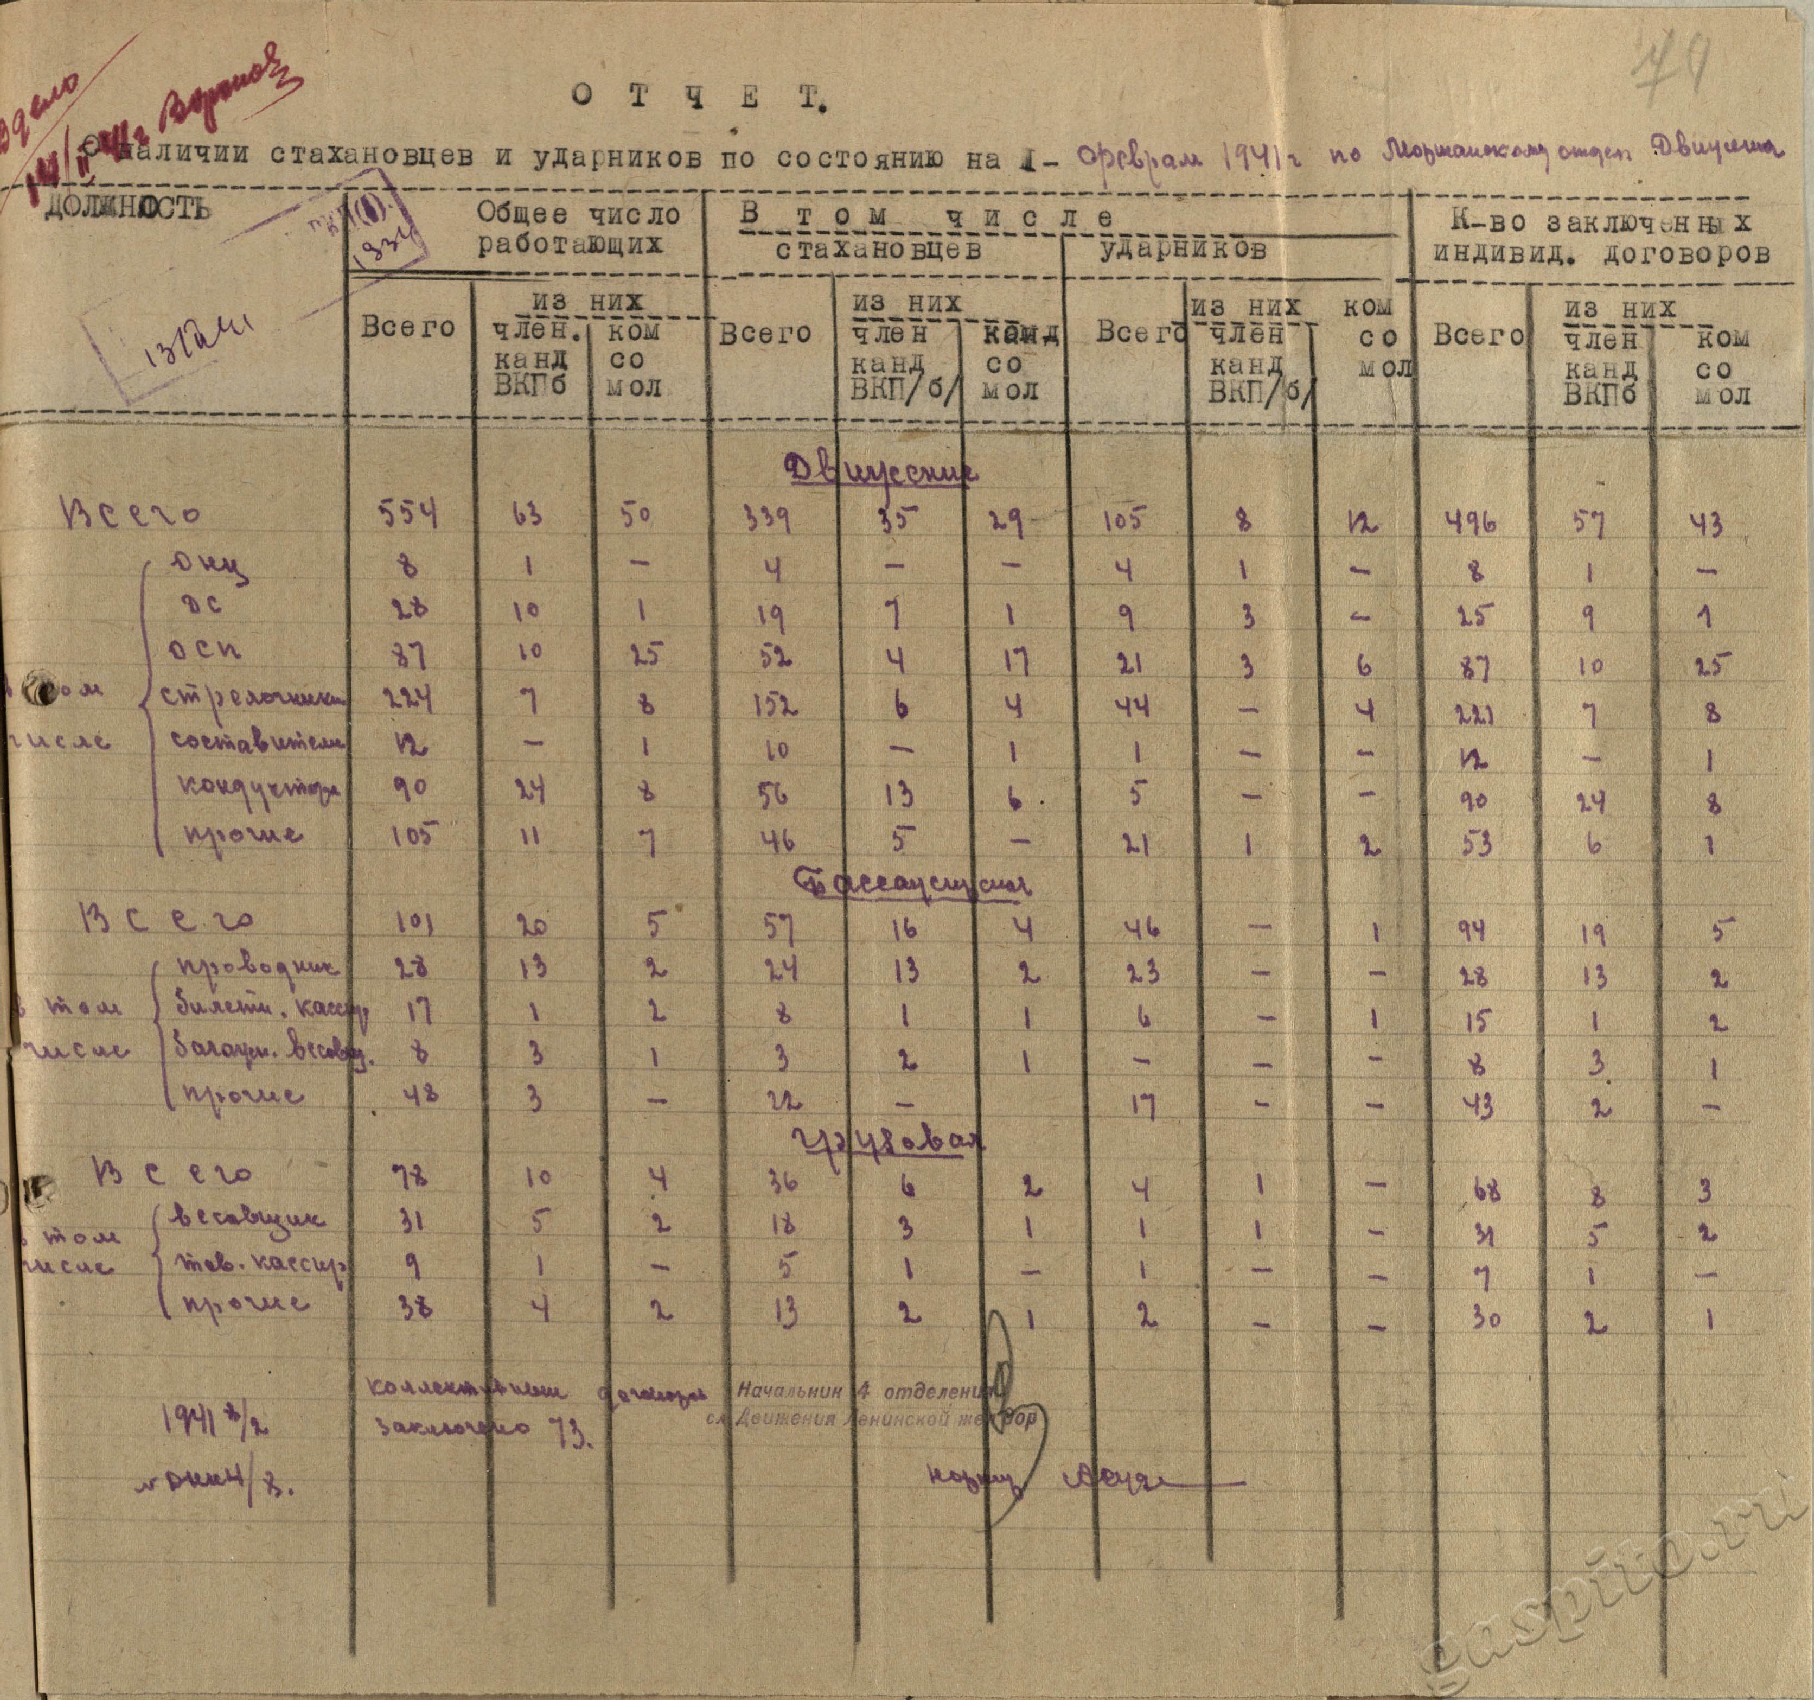 74
В дело
14/II 41г Воронов
О Т Ч Е Т.
О наличии стахановцев и ударников по состоянию на I- февраля 1941 г по Моршанскому отдел Движения
ДОЛЖНОСТЬ
Общее число работающих
В том числе
К-во заключенных индивид. договоров
стахановцев
ударников
Всего
из них
член. канд ВКПб
ком со мол
Всего
из них
член канд ВКП/б/
ком со мол
Всего
из них
член канд ВКП/б/
ком со мол
Всего
из них
член канд ВКПб
ком со мол
Движение
Всего 554 63 50 339 35 29 105 8 12 496 57 43
в том числе
ДНЦ 8 1 — 4 — — 4 1 — 8 1 —
ДС 28 10 1 19 7 1 9 3 — 25 9 1
ДСП 87 10 25 52 4 17 21 3 6 87 10 25
стрелочники 224 7 8 152 6 4 44 — 4 221 7 8
составители 12 — 1 10 — 1 1 — — 12 — 1
кондуктора 90 24 8 56 13 6 5 — — 90 24 8
прочие 105 11 7 46 5 — 21 1 2 53 6 1
Пассажирская
Всего 101 20 5 57 16 4 46 — 1 94 19 5
в том числе
проводник 28 13 2 24 13 2 23 — — 28 13 2
билетн. кассир 17 1 2 8 1 1 6 — 1 15 1 2
багажн. весовщ. 8 3 1 3 2 1 — — — 8 3 1
прочие 48 3 — 22 — 17 — — 43 2 —
грузовая
Всего 78 10 4 36 6 2 4 1 — 68 8 3
в том числе
весовщик 31 5 2 18 3 1 1 1 — 31 5 2
тов. кассир 9 1 — 5 1 — 1 — — 7 1 —
прочие 38 4 2 13 2 1 2 — — 30 2 1
коллективных договоров
заключено 73.
1941 8/2
Начальник 4 отделения
сл. Движения Ленинской жел дор
gaspito.ru